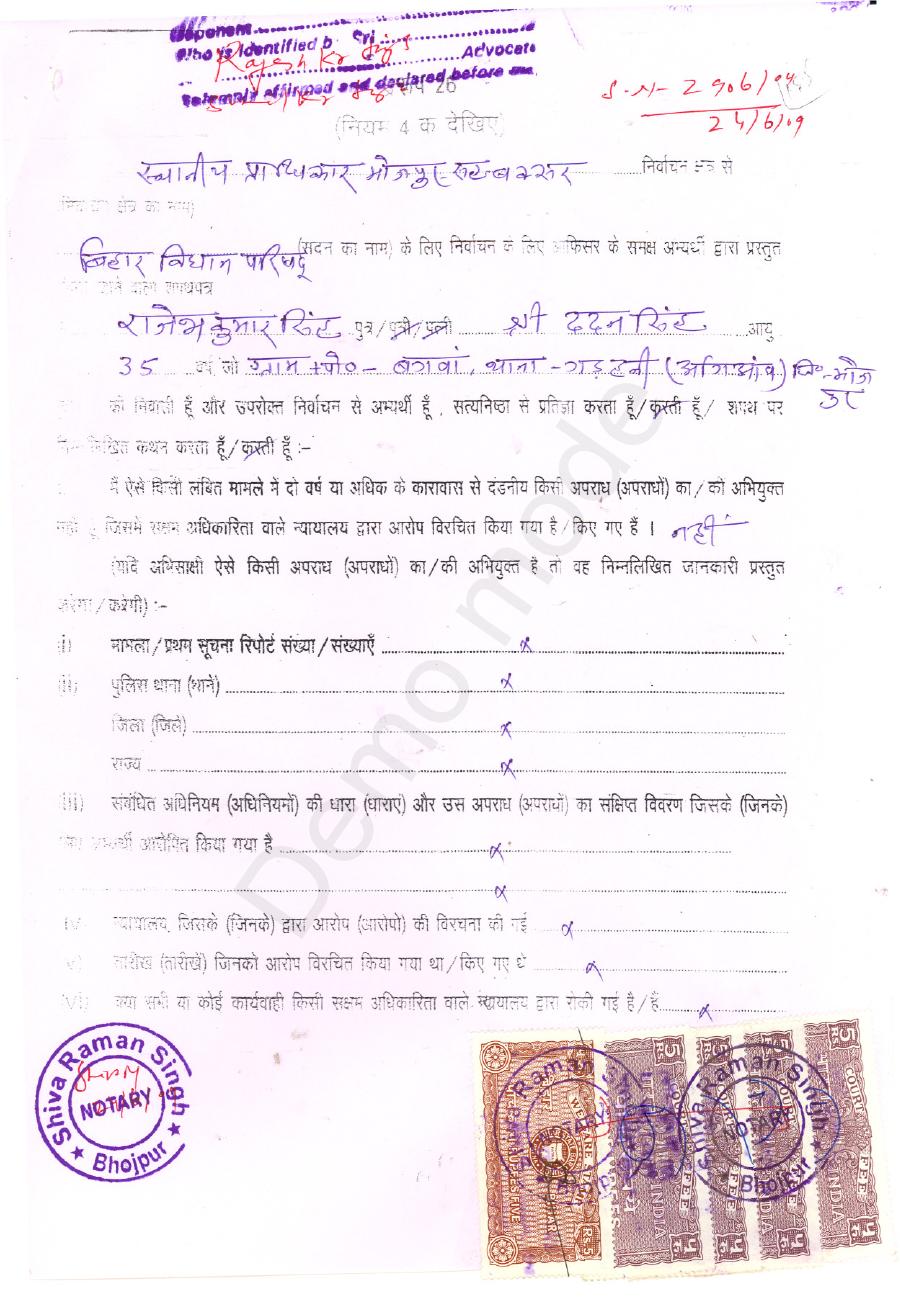 Deponent
Who is identified b Sri
Rajesh Kr Singh
Advocate
Solemnly affirmed and declared before me
26
S.N- 2906/09
24/6/09
(नियम 4 क देखिए)
स्थानीय प्राधिकार भोजपुर-सह-बक्सर निर्वाचन क्षेत्र से
निर्वाचन क्षेत्र का नाम)
बिहार विधान परिषद् (सदन का नाम) के लिए निर्वाचन के लिए आफिसर के समक्ष अभ्यर्थी द्वारा प्रस्तुत
जाने वाला शपथपत्र
राजेश कुमार सिंह पुत्र/पुत्री/पत्नी श्री ददन सिंह आयु
35 वर्ष, जो ग्राम+पो०- बगवां, थाना-गड़हनी (अगिआंव) जि०-भोजपुर
का निवासी हूँ और उपरोक्त निर्वाचन से अभ्यर्थी हूँ , सत्यनिष्ठा से प्रतिज्ञा करता हूँ/करती हूँ/ शपथ पर
निम्नलिखित कथन करता हूँ/करती हूँ :-
मैं ऐसे किसी लंबित मामले में दो वर्ष या अधिक के कारावास से दंडनीय किसी अपराध (अपराधों) का/की अभियुक्त
नहीं हूँ जिसमें सक्षम अधिकारिता वाले न्यायालय द्वारा आरोप विरचित किया गया है/किए गए हैं । नहीं
(यदि अभिसाक्षी ऐसे किसी अपराध (अपराधों) का/की अभियुक्त है तो वह निम्नलिखित जानकारी प्रस्तुत
करेगा/करेगी) :-
i) मामला/प्रथम सूचना रिपोर्ट संख्या/संख्याएँ x
ii) पुलिस थाना (थाने) x
जिला (जिले) x
राज्य x
iii) संबंधित अधिनियम (अधिनियमों) की धारा (धाराए) और उस अपराध (अपराधों) का संक्षिप्त विवरण जिसके (जिनके)
अभ्यर्थी आरोपित किया गया है x
x
iv) न्यायालय, जिसके (जिनके) द्वारा आरोप (आरोपो) की विरचना की गई x
v) तारीख (तारीखें) जिनको आरोप विरचित किया गया था/किए गए थे x
vi) क्या सभी या कोई कार्यवाही किसी सक्षम अधिकारिता वाले न्यायालय द्वारा रोकी गई है/हैं x
Shiva Raman Singh
NOTARY
Bhojpur
Shiva Raman
NOTARY
WELFARE
RUPEES FIVE
BIHAR
RS.5
COURT FEE
INDIA
5 Rs.
Shiva Raman Singh
NOTARY
Bhojpur
Demo mode